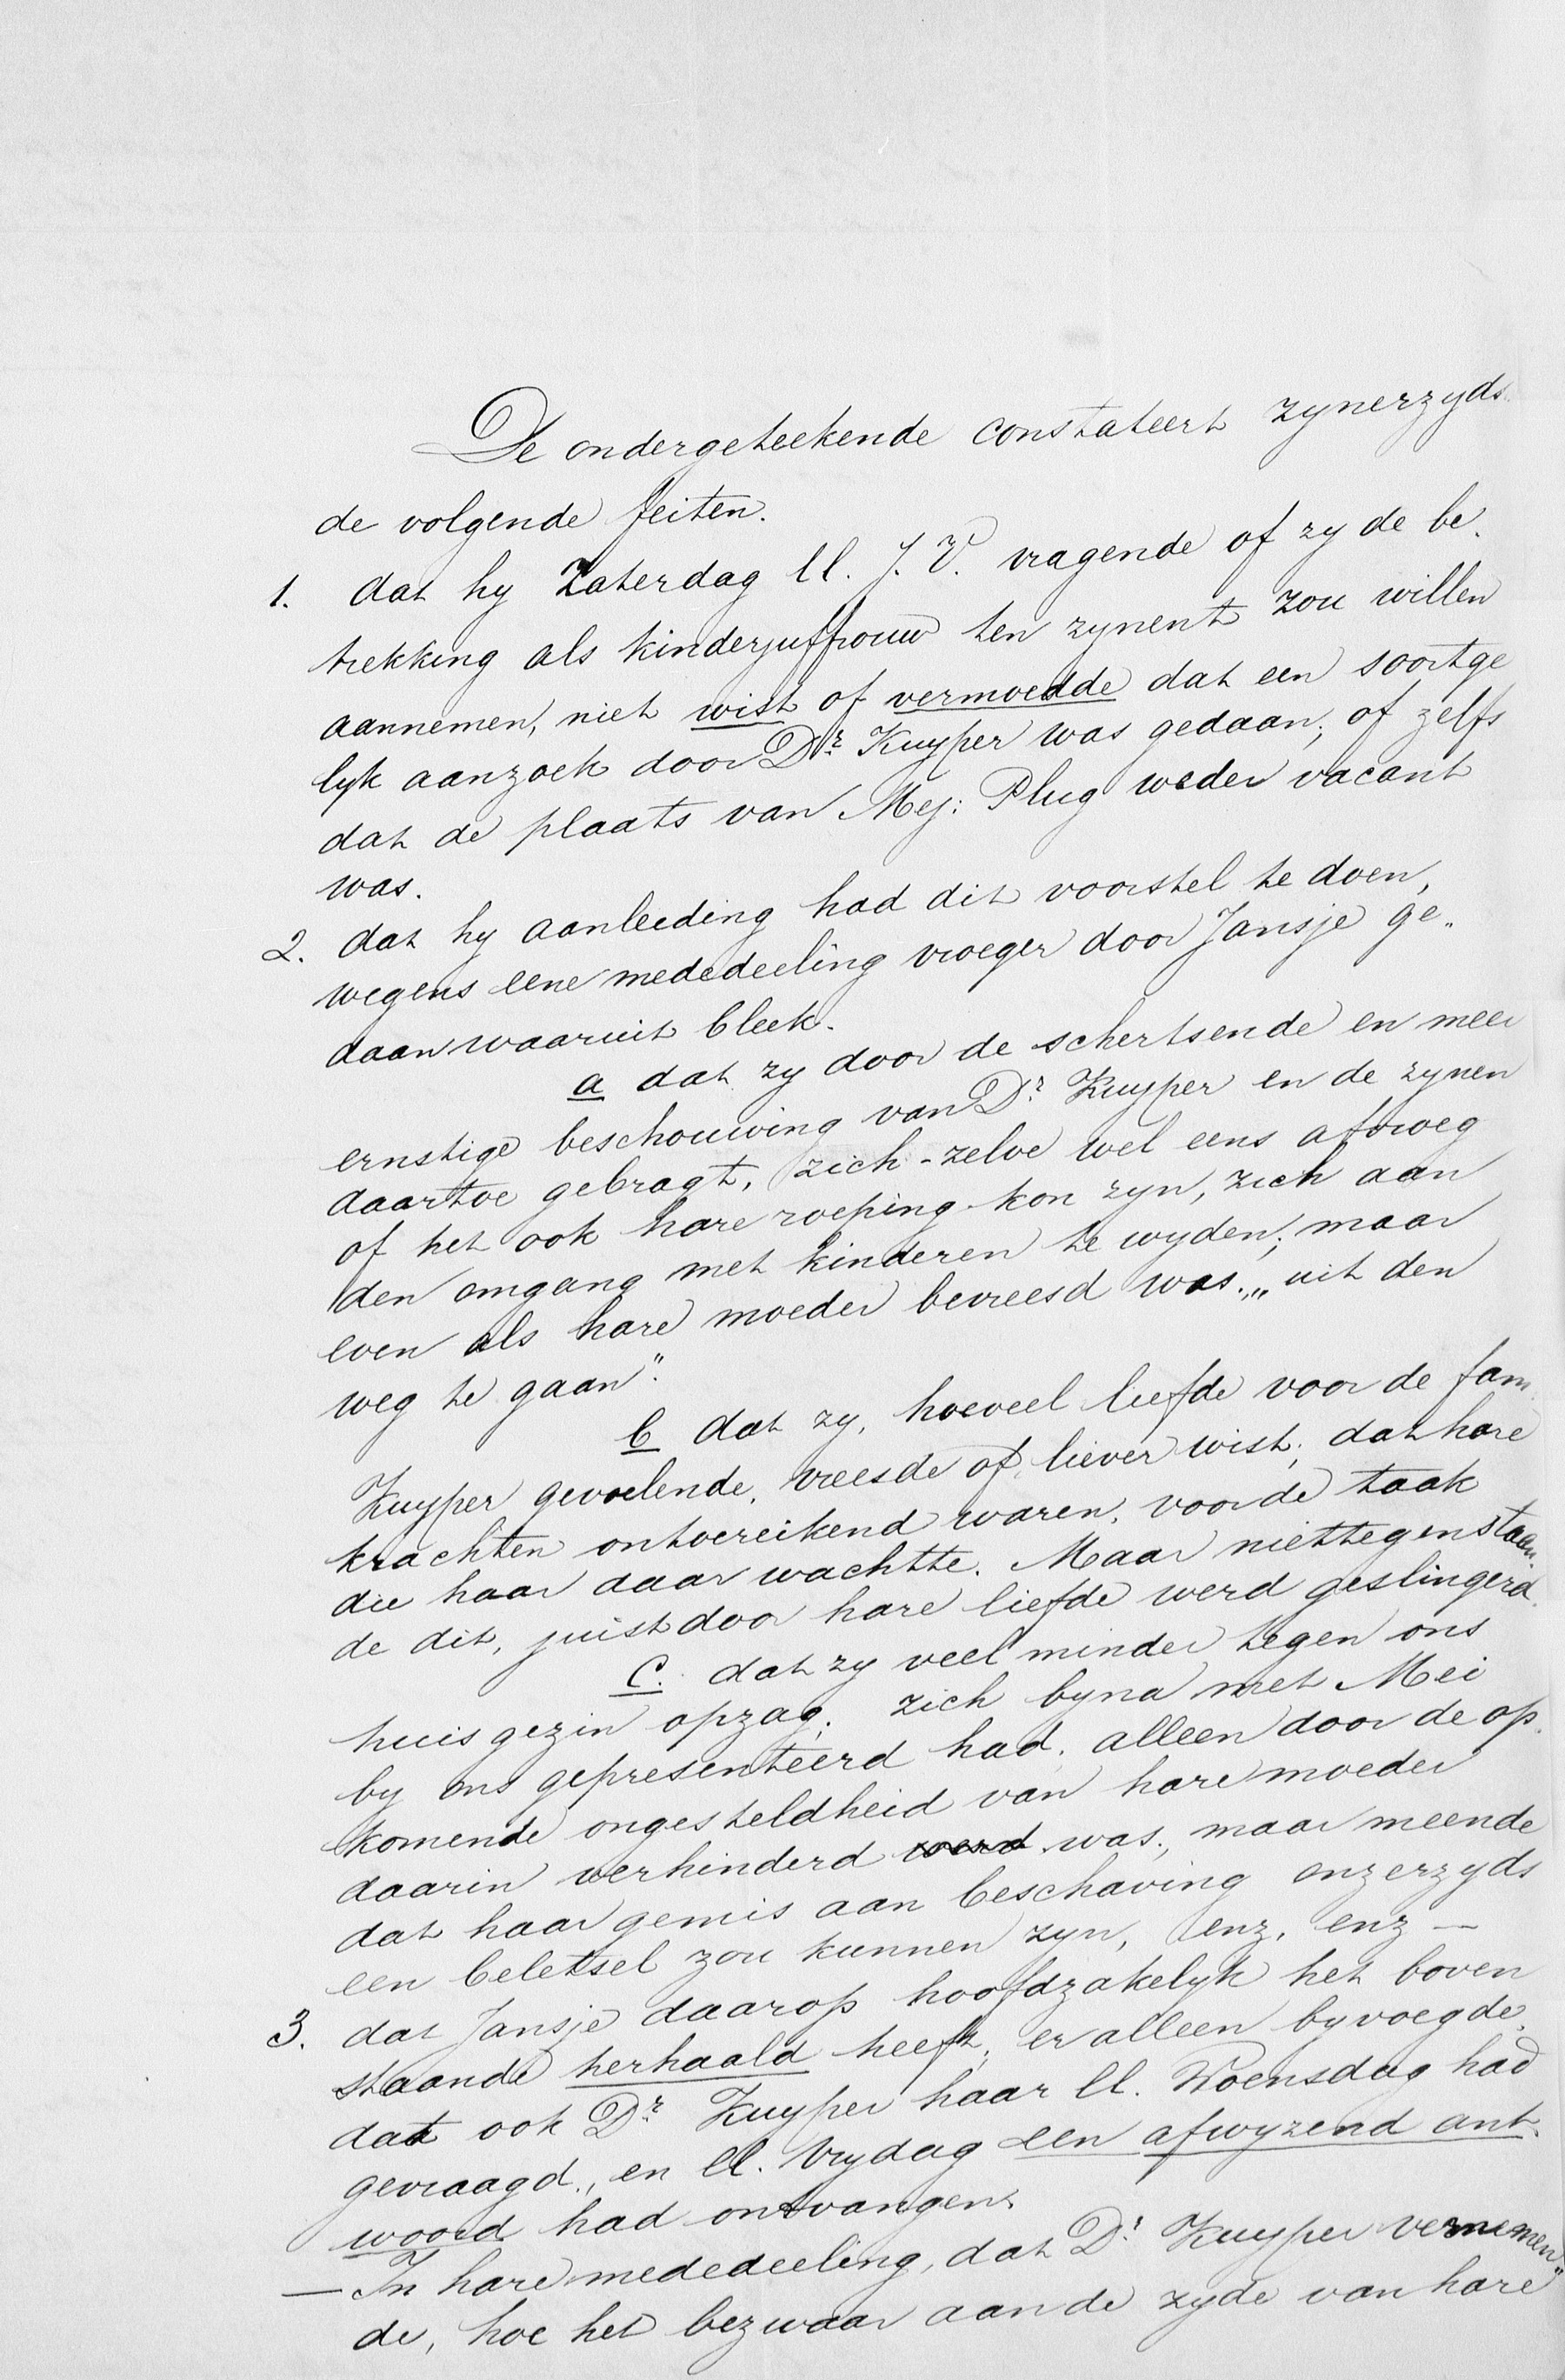 De ondergeteekende constateert zynerzyds
de volgende feiten.
1. dat hy Zaterdag ll. J. V. vragende of zy de be-
trekking als kinderjuffrouw ten zynent zou willen
aannemen, niet wist of vermoedde dat een soortge
lyk aanzoek door Dr. Kuyper was gedaan; of zelfs
dat de plaats van Mej: Plug weder vacant
was.
2. dat hy aanleiding had dit voorstel te doen,
wegens eene mededeeling vroeger door Jansje ge„
daan waaruit bleek.
a dat zy door de schertsende en meer
ernstige beschouwing van Dr. Kuyper en de zynen
daartoe gebragt, zich-zelve wel eens afvroeg
of het ook hare roeping kon zyn, zich aan
den omgang met kinderen te wyden; maar
even als hare moeder bevreesd was „uit den
weg te gaan".
b dat zy, hoeveel liefde voor de fam.
Kuyper gevoelende, vreesde of liever wist, dat hare
krachten ontoereikend waren, voor de taak
die haar daar wachtte. Maar niettegenstaan-
de dit, juist door hare liefde werd geslingerd.
C. dat zy veel minder tegen ons
huisgezin opzag; zich byna met Mei
by ons gepresenteerd had, alleen door de op-
komende ongesteldheid van hare moeder
daarin verhinderd werd was, maar meende
dat haar gemis aan beschaving onzerzyds
een beletsel zou kunnen zyn, enz, enz —
3. dat Jansje daarop hoofdzakelyk het boven
staande herhaald heeft, er alleen byvoegde,
dat ook Dr. Kuyper haar ll. Woensdag had
gevraagd, en ll. Vrydag een afwyzend ant-
woord had ontvangen.
— In hare mededeeling, dat Dr. Kuyper vernemen„
de, hoe het bezwaar aan de zyde van hare